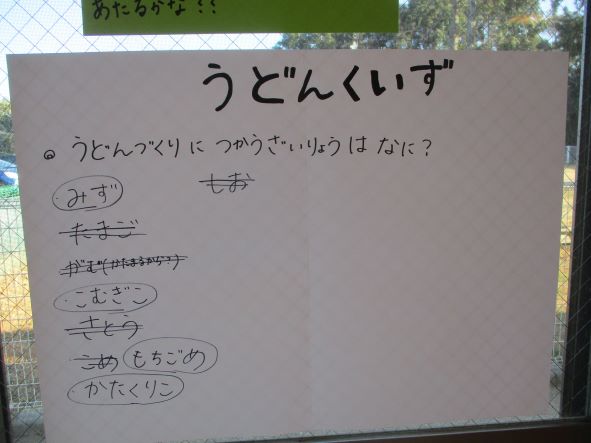 あたるかな??
うどんくいず
うどんづくりに つかうざいりょうは なに?
・みず しお
たまご
がむ(かたまるからっ)
・こむぎこ
さとう
こめ もちごめ
・かたくりこ